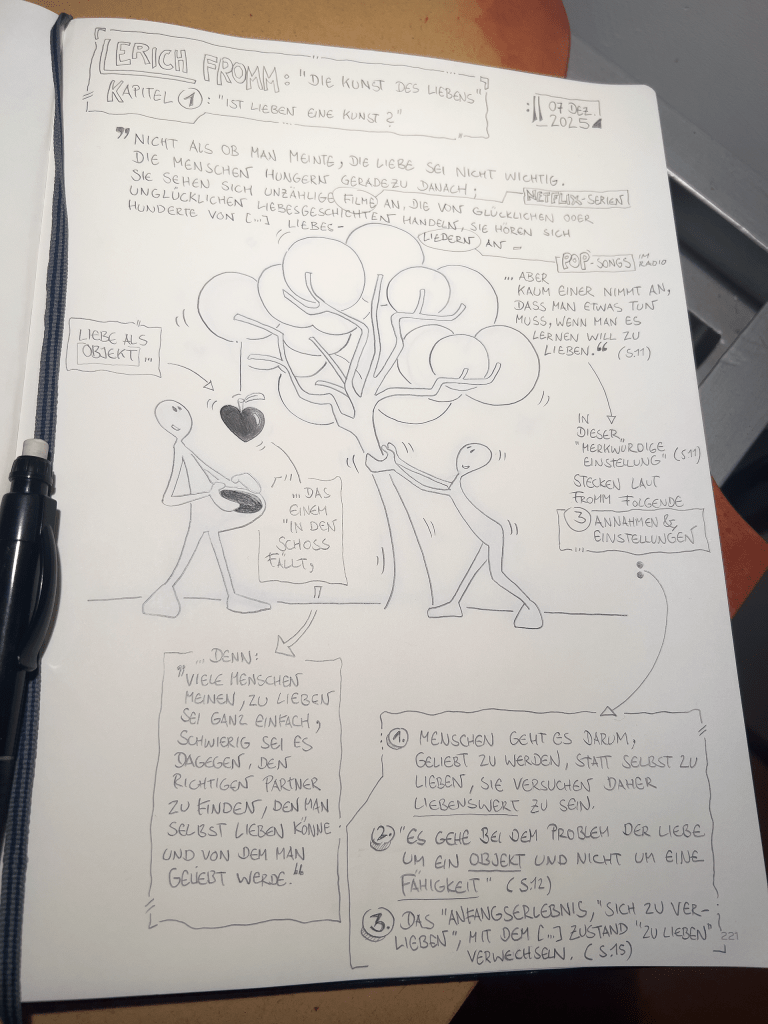 ERICH FROMM: "DIE KUNST DES LIEBENS"
KAPITEL 1: "IST LIEBEN EINE KUNST?"
07 DEZ.
2025
"NICHT ALS OB MAN MEINTE, DIE LIEBE SEI NICHT WICHTIG.
DIE MENSCHEN HUNGERN GERADEZU DANACH;
SIE SEHEN SICH UNZÄHLIGE FILME AN, DIE VON GLÜCKLICHEN ODER
NETFLIX-SERIEN
UNGLÜCKLICHEN LIEBESGESCHICHTEN HANDELN, SIE HÖREN SICH
HUNDERTE VON [...] LIEBES-
LIEDERN AN -
POP-SONGS IM RADIO
... ABER
KAUM EINER NIMMT AN,
DASS MAN ETWAS TUN
MUSS, WENN MAN ES
LERNEN WILL ZU
LIEBEN." (S.11)
LIEBE ALS
OBJEKT ...
... DAS
EINEM
"IN DEN
SCHOSS
FÄLLT,
IN
DIESER
"MERKWÜRDIGE
EINSTELLUNG" (S.11)
STECKEN LAUT
FROMM FOLGENDE
3 ANNAHMEN &
EINSTELLUNGEN
:
... DENN:
"VIELE MENSCHEN
MEINEN, ZU LIEBEN
SEI GANZ EINFACH,
SCHWIERIG SEI ES
DAGEGEN, DEN
RICHTIGEN PARTNER
ZU FINDEN, DEN MAN
SELBST LIEBEN KÖNNE
UND VON DEM MAN
GELIEBT WERDE."
1. MENSCHEN GEHT ES DARUM,
GELIEBT ZU WERDEN, STATT SELBST ZU
LIEBEN, SIE VERSUCHEN DAHER
LIEBENSWERT ZU SEIN.
2. "ES GEHE BEI DEM PROBLEM DER LIEBE
UM EIN OBJEKT UND NICHT UM EINE
FÄHIGKEIT" (S.12)
3. DAS "ANFANGSERLEBNIS, "SICH ZU VER-
LIEBEN", MIT DEM [...] ZUSTAND "ZU LIEBEN"
VERWECHSELN. (S.15)
221